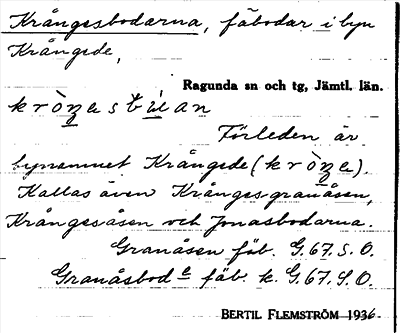 Krångesbodarna, fäbodar i byn
Krångede,
Ragunda sn och tg, Jämtl. län.
Förleden är
bynamnet Krångede
Kallas även Krångesgranåsen,
Krångesåsen och Jonasbodarna.
Granåsen fäb. G.67.S.O.
Granåsbod fäb. k. G.67.S.O.
BERTIL FLEMSTRÖM 1936.